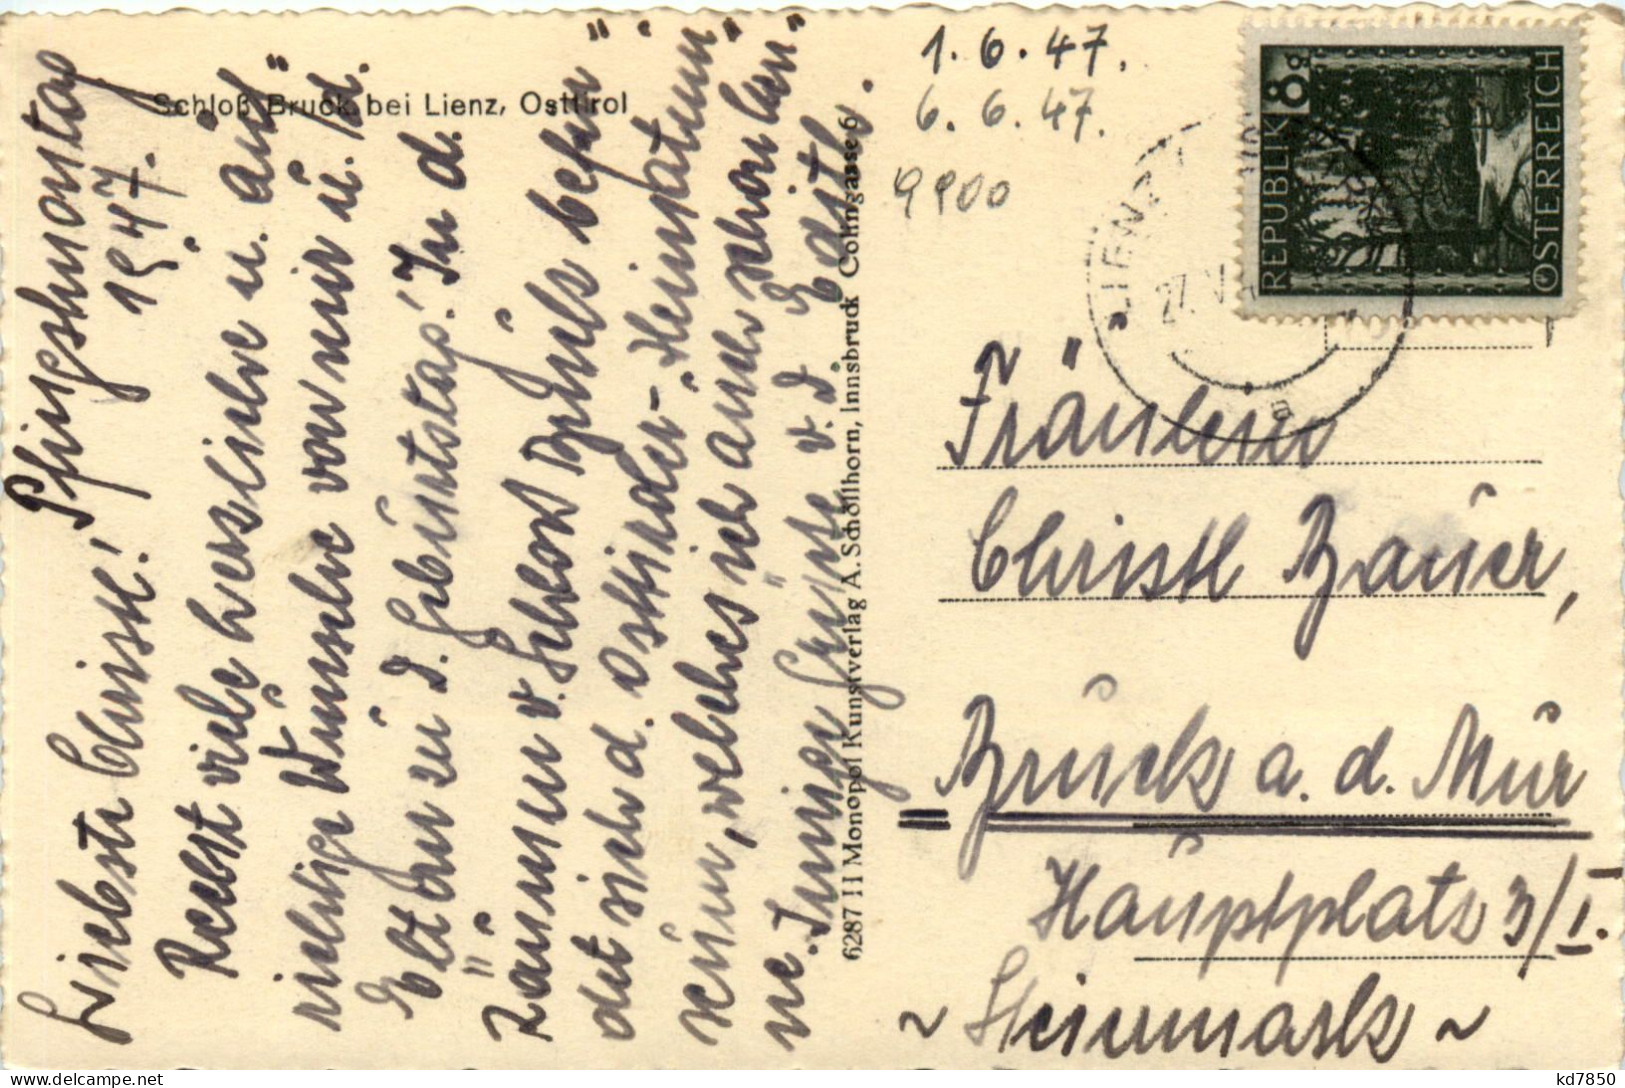 Schloß Bruck bei Lienz, Osttirol
Pfingstmontag
1947.
Liebste Christl!
Recht viele herzliche u. auf-
richtige Wünsche von mir u. m.
Eltern zu d. Geburtstag! In d.
Räumen v. Schloß Bruck befin-
det sich d. Osttiroler-Heimatmu-
seum, welches ich auch schon ken-
ne. Innige Grüße v. d. Edith.
6287 H Monopol Kunstverlag A. Schöllhorn, Innsbruck Collingasse 6
1.6.47.
6.6.47.
9900
REPUBLIK
8g
ÖSTERREICH
LIENZ
27. V.
a
Fräulein
Christl Bauer,
Bruck a. d. Mur
Hauptplatz 3/I.
~ Steiermark ~
kd7850